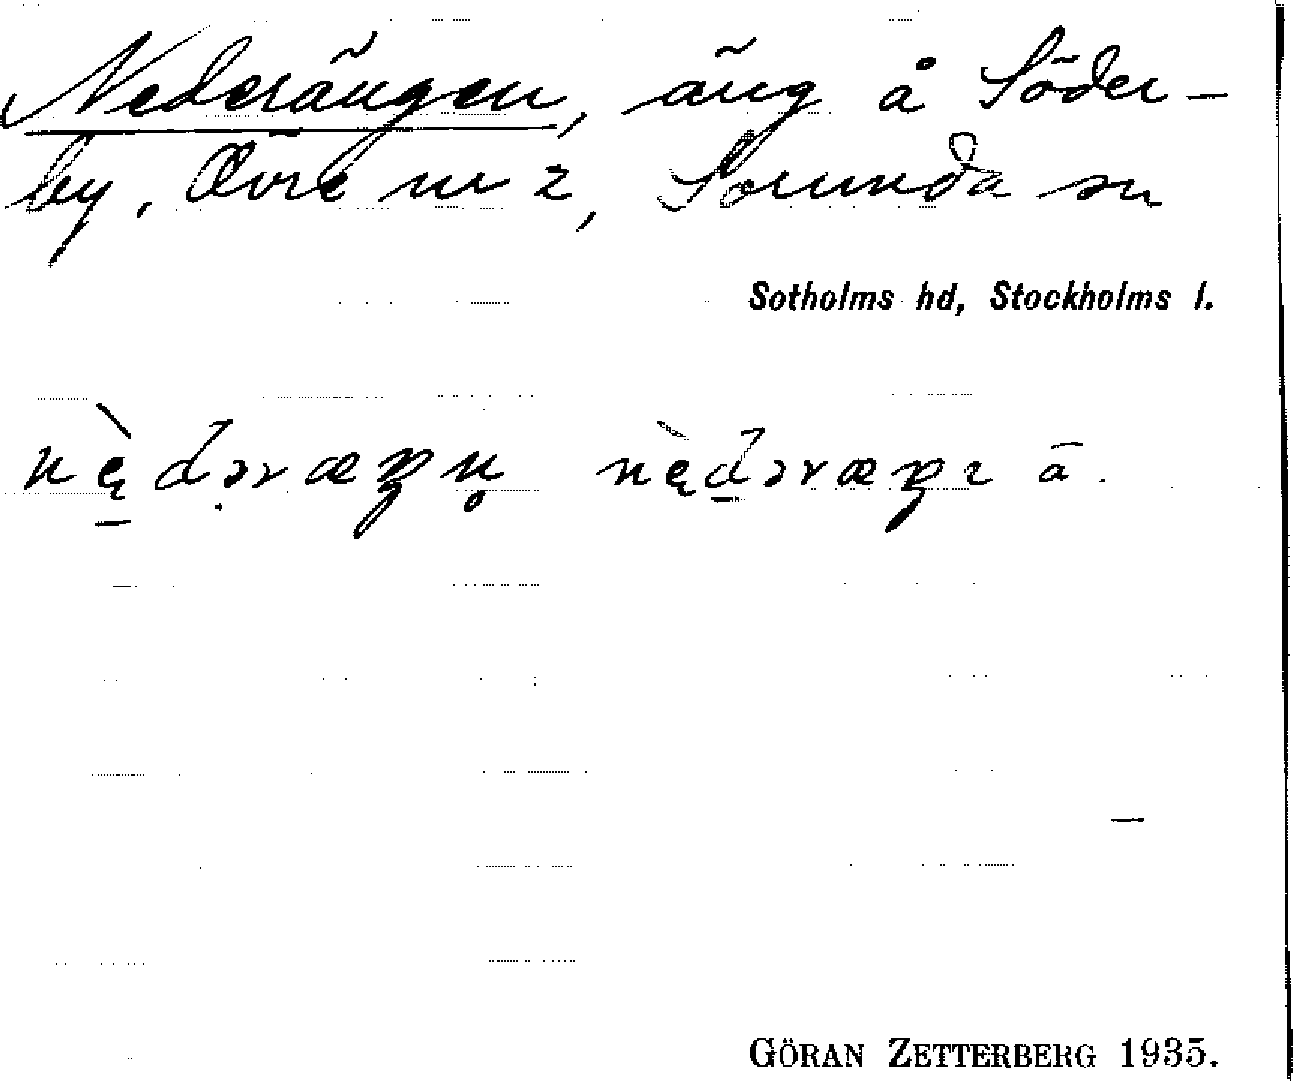 Nederängen, äng å Söder-
by, Övre nr 2, Sorunda sn
Sotholms hd, Stockholms l.
GÖRAN ZETTERBERG 1935.